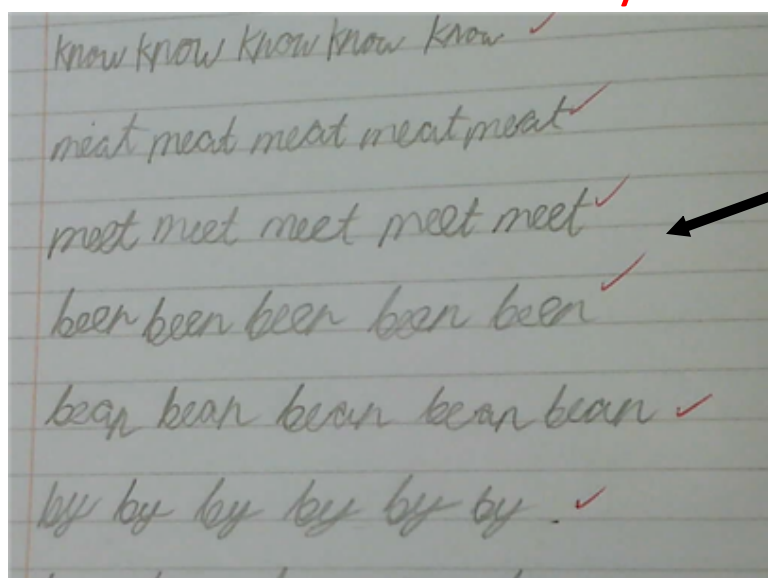 know know know know know
meat meat meat meat meat
meet meet meet meet meet
been been been been been
bean bean bean bean bean
by by by by by by .